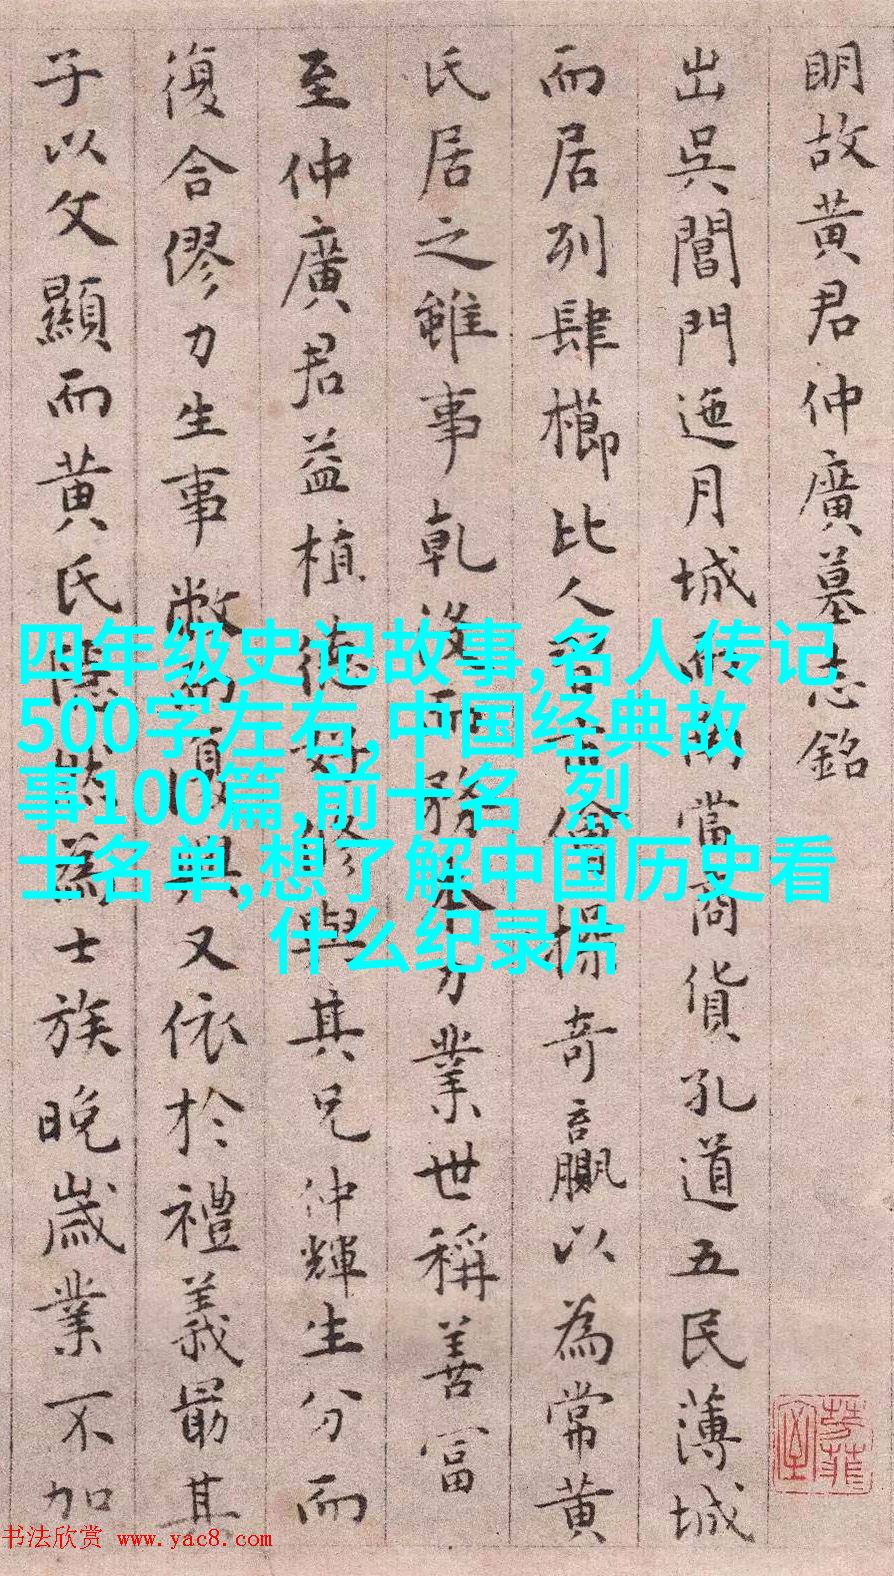 明故黄君仲廣墓志銘
出吳閶門迤月城而南當商貨孔道五民薄城
而居列肆櫛比人習儈操奇贏以為常黄
氏居之雖事乾没而務本力業世稱善富
至仲廣君益植德好修與其兄仲輝生分而
復合僇力生事敝又依於禮義最其
子以文顯而黄氏隱然為士族晚歲業不加
四年级史记故事,名人传记
500字左右,中国经典故
事100篇,前十名 烈
士名单,想了解中国历史看
什么纪录片
书法欣赏 www.yac8.com